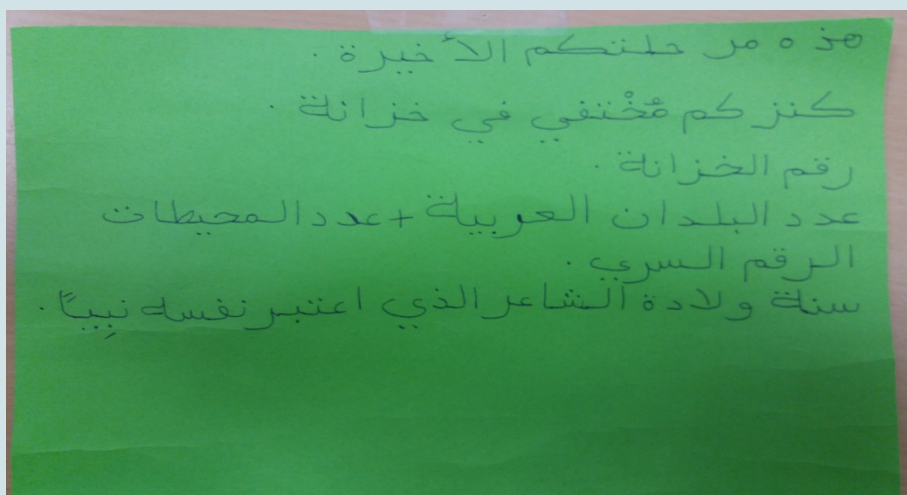 هذه مرحلتكم الأخيرة .
كنزكم مُخْتفي في خزانة .
رقم الخزانة .
عدد البلدان العربية + عدد المحيطات
الرقم السري .
سنة ولادة الشاعر الذي اعتبر نفسه نبِيـًا .